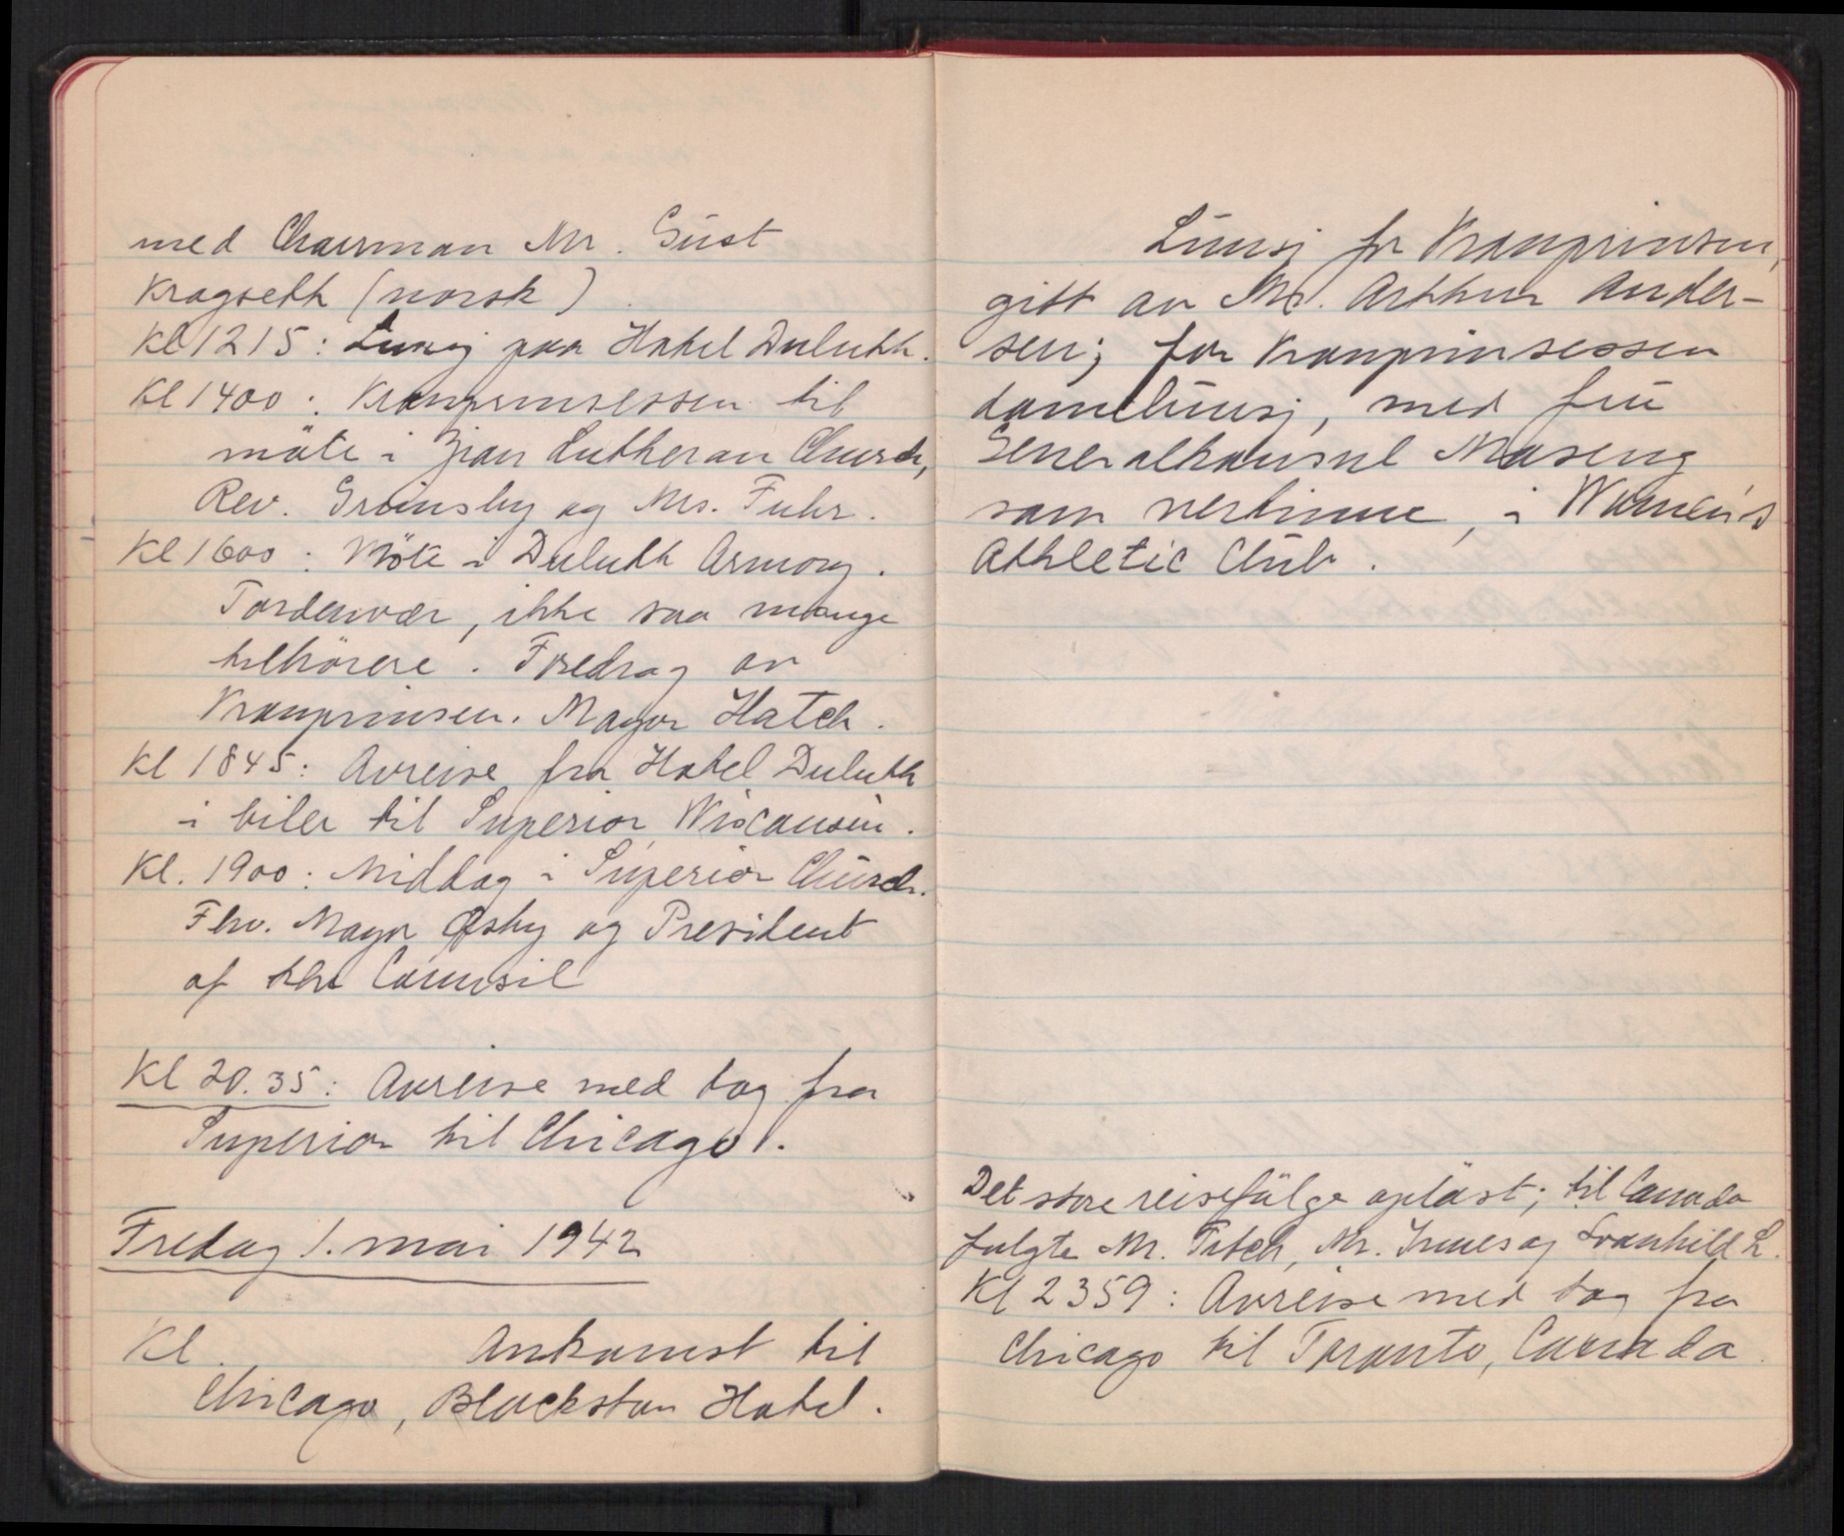 med Chairman Mr. Gust
Kragseth (norsk)
Kl 1215: Lunsj paa Hotel Duluth.
Kl 1400: Kronprinsessen til
möte i Zion Lutheran Church,
Rev. Grimsby og Mrs. Fuhr.
Kl 1600: Möte i Duluth Armory.
Tordenvær, ikke saa mange
tilhörere. Foredrag av
Kronprinsen. Mayor Hatch.
Kl 1845: Avreise fra Hotel Duluth
i biler til Superior, Wisconsin.
Kl. 1900: Middag i Superior Church.
Fhv. Mayor Osby og President
of the Counsil
Kl 20.35: Avreise med tog fra
Superior til Chicago.
Fredag 1. mai 1942
Kl. Ankomst til
Chicago, Blackston Hotel.
Lunsj for Kronprinsen,
gitt av Mr. Arthur Ander-
sen; for Kronprinsessen
damelunsj, med fru
Generalkonsul Maseng
som vertinne, i Women's
Athletic Club.
Det store reisefölge oplöst; til Canada
fulgte Mr. Fitch, Mr. Innes og Svanhild L.
Kl 2359: Avreise med tog fra
Chicago til Toronto, Canada